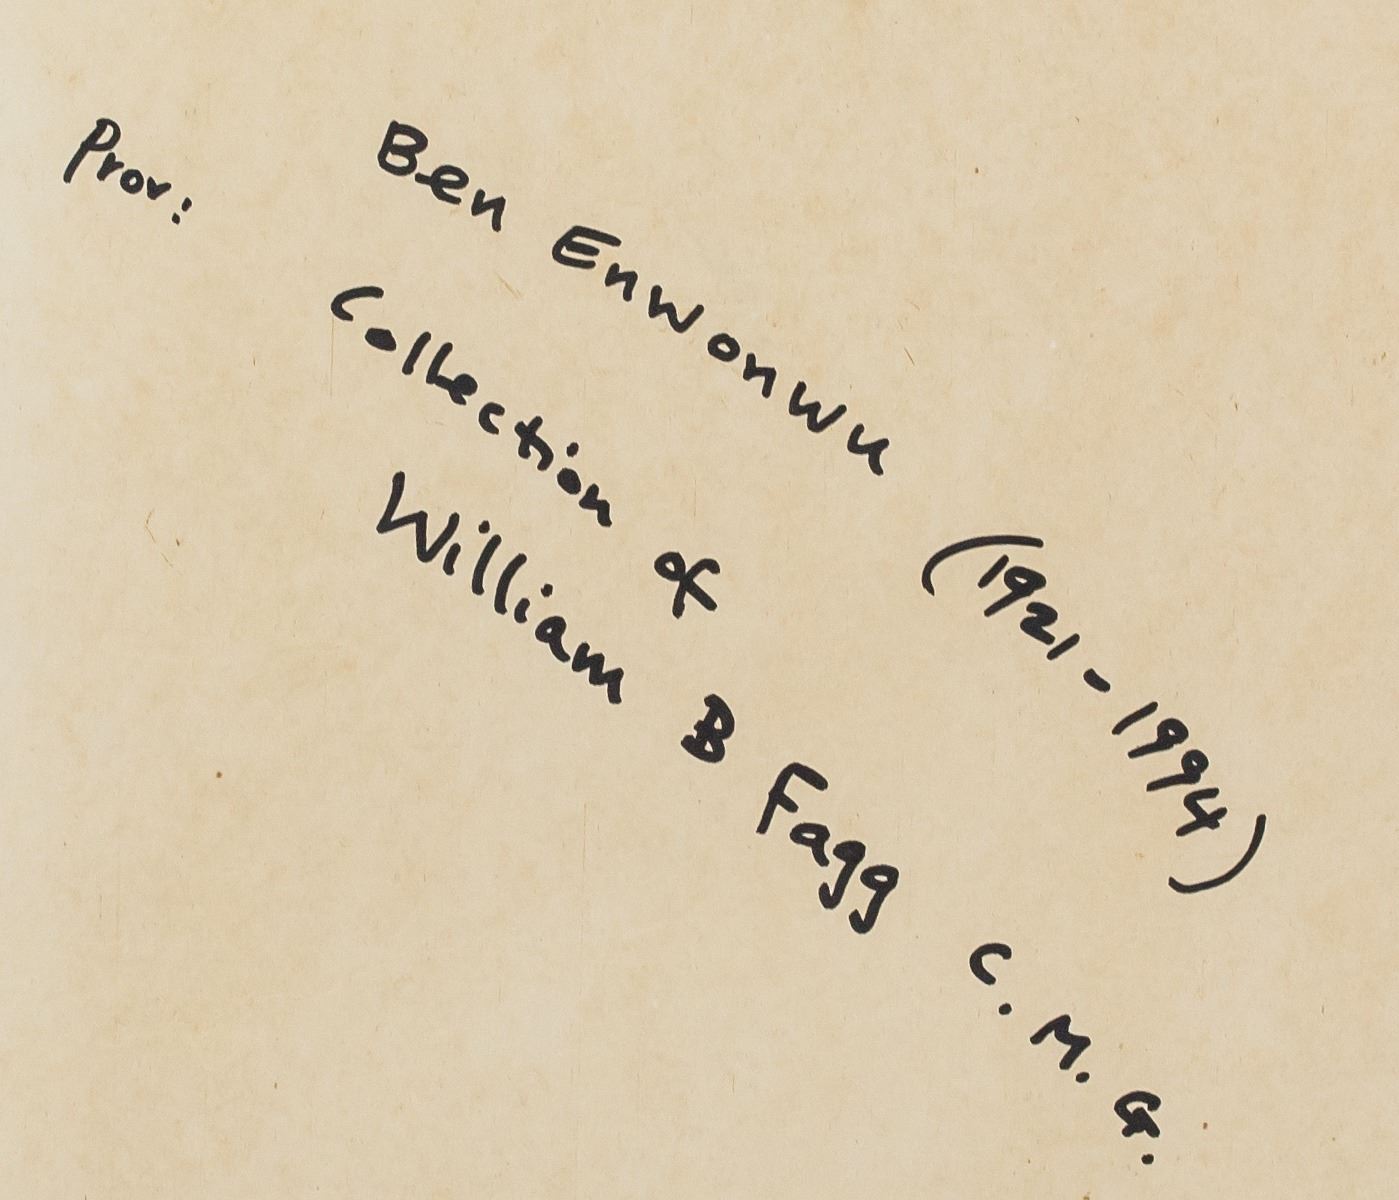 Prov: Ben Enwonwu (1921-1994)
Collection of
William B Fagg C.M.G.